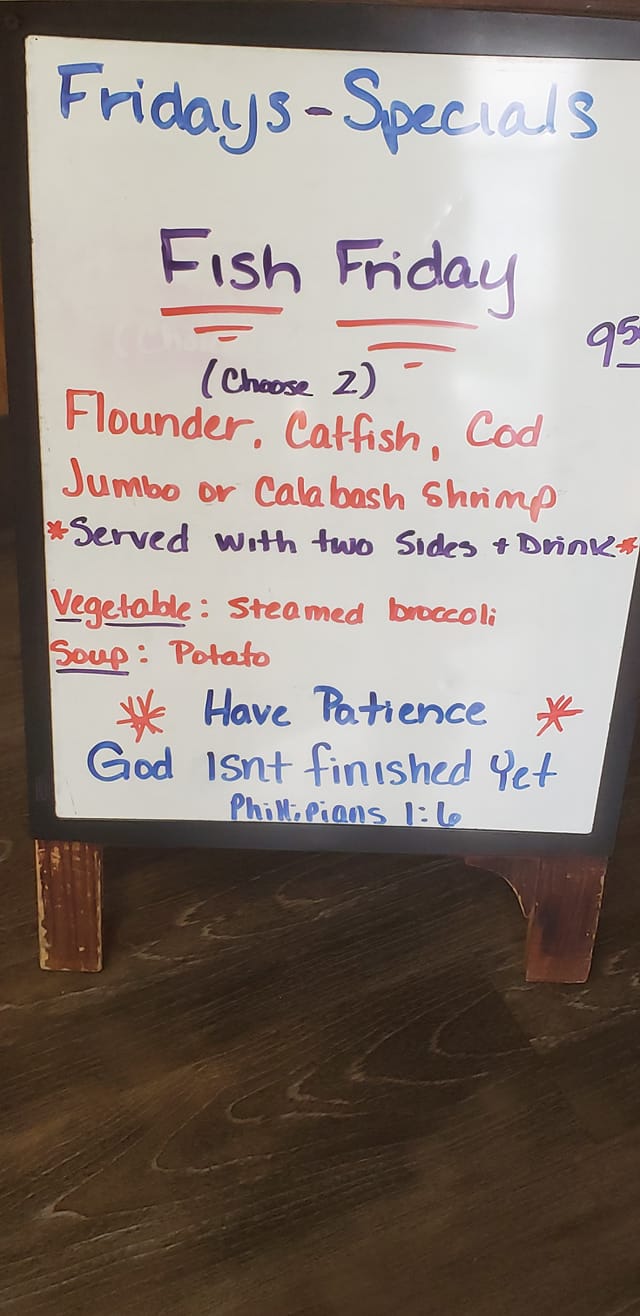 Fridays - Specials
Fish Friday
95
(Choose 2)
Flounder, Catfish, Cod
Jumbo or Calabash Shrimp
*Served with two Sides + Drink*
Vegetable: Steamed broccoli
Soup: Potato
* Have Patience *
God Isnt finished Yet
Phillipians 1:6